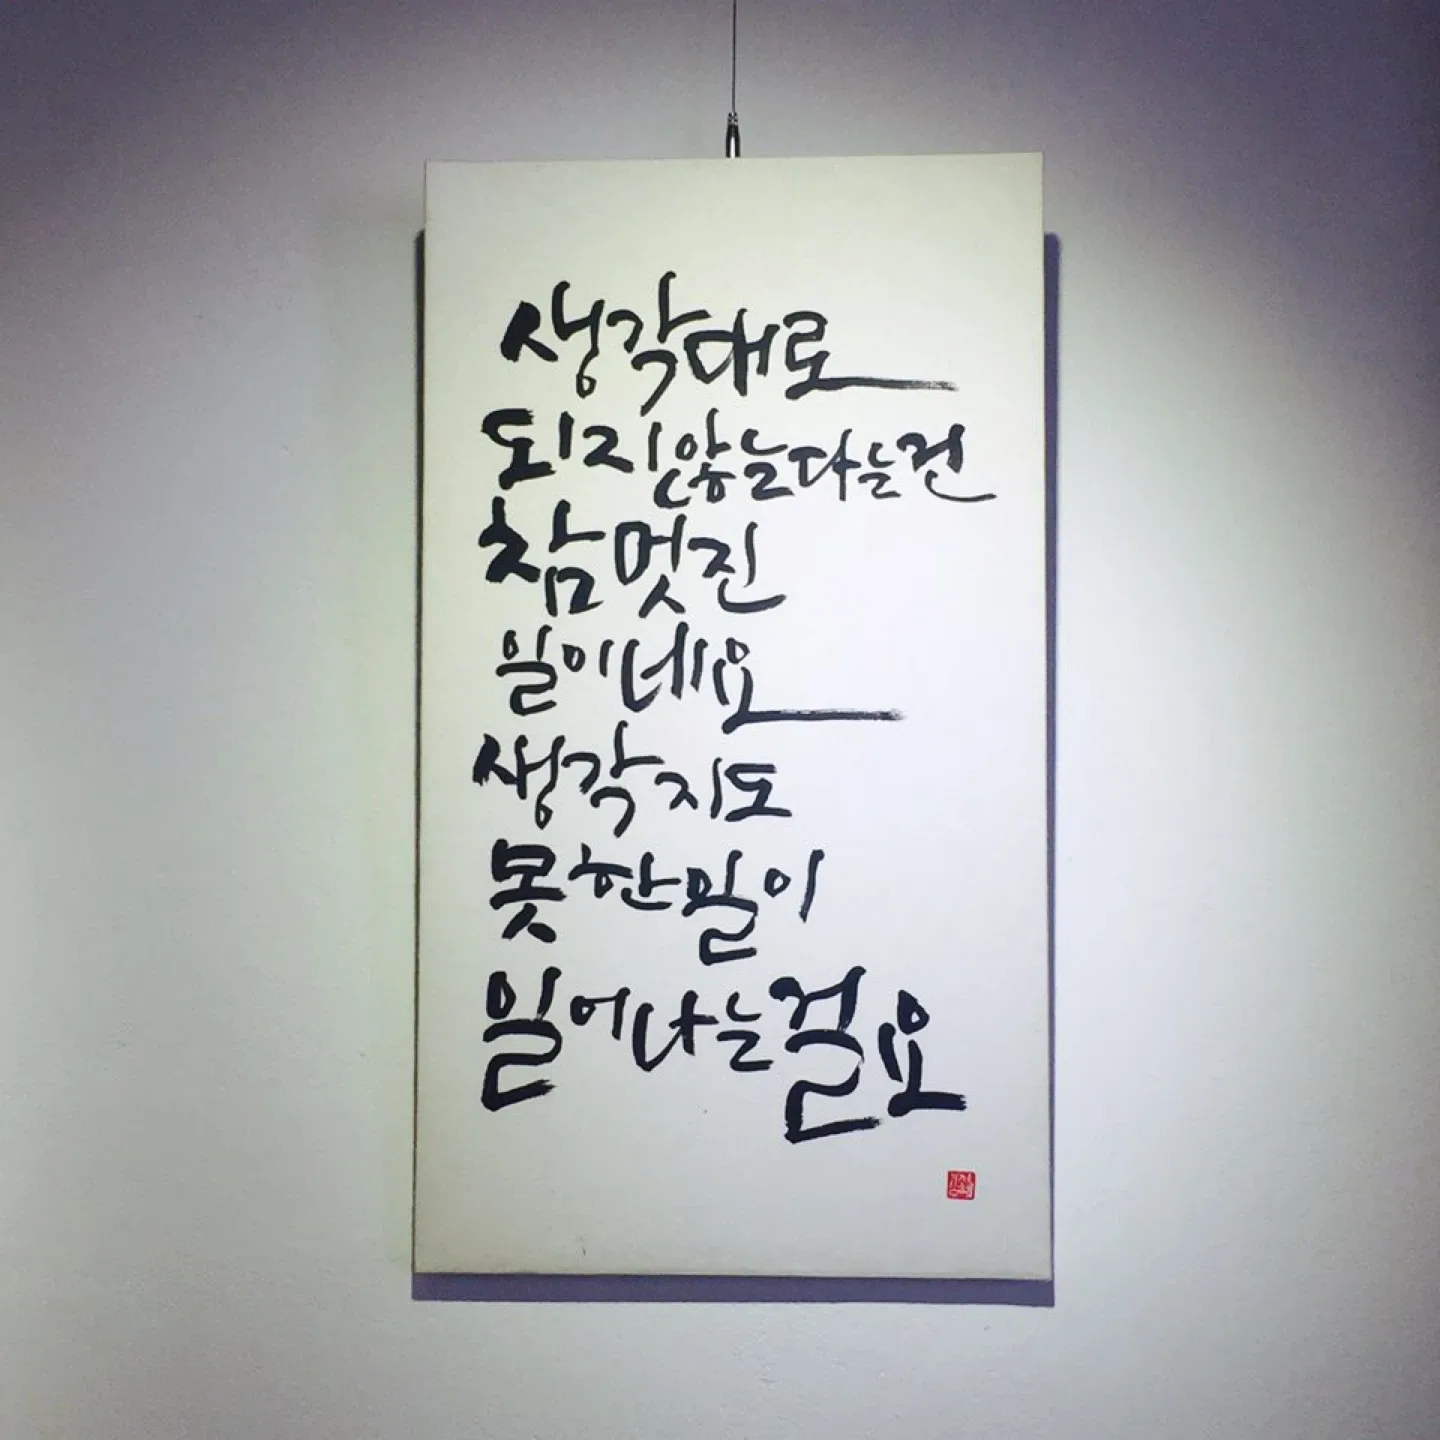 생각대로
되지 않는다는 건
참 멋진
일이네요
생각지도
못한 일이
일어나는걸요